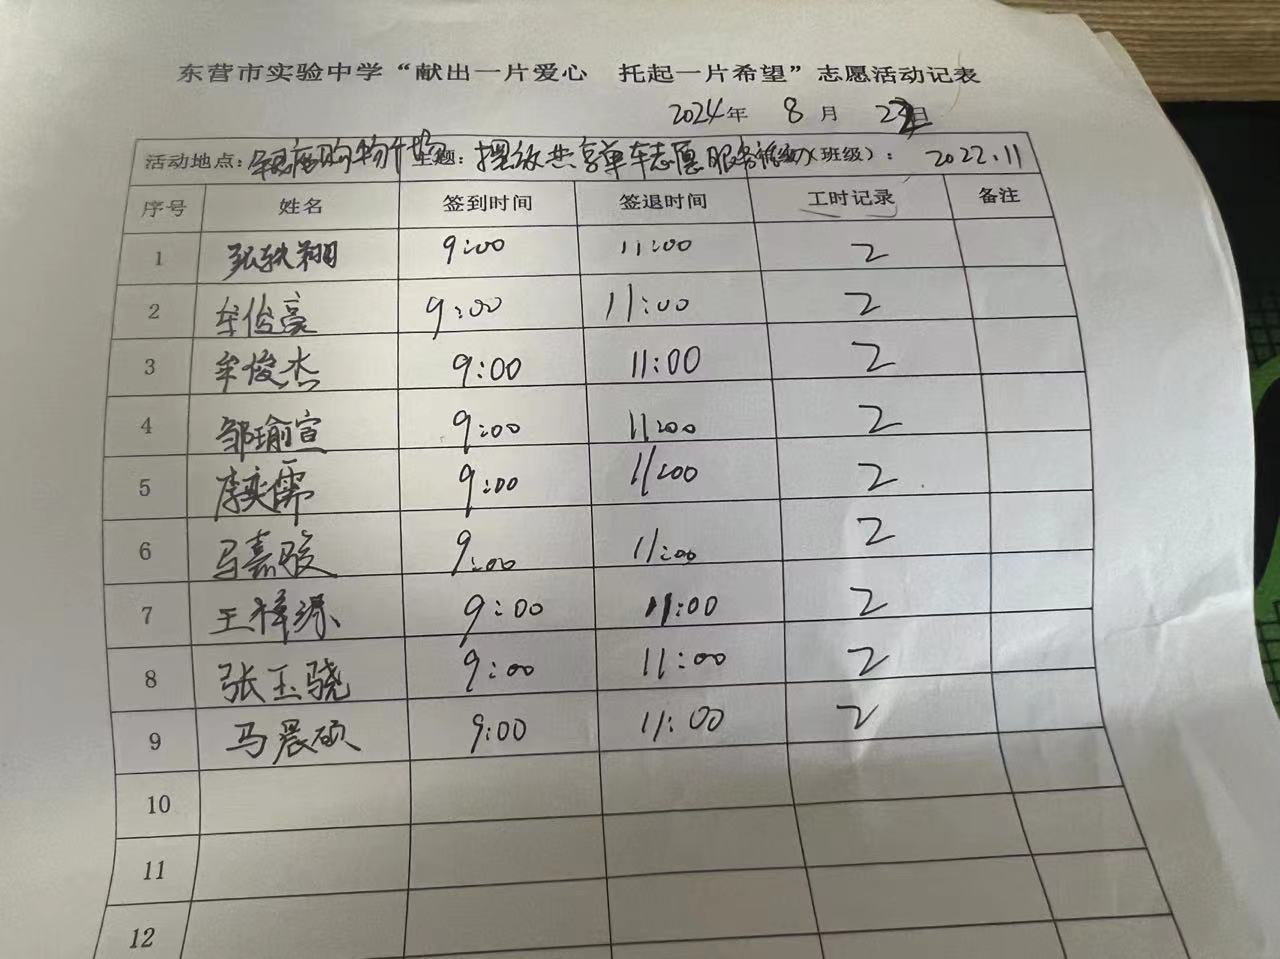 东营市实验中学“献出一片爱心 托起一片希望”志愿活动记表
2024年 8月 日
活动地点：购物广场 主题：摆放共享单车志愿服务活动 (班级)：2022.11
序号 姓名 签到时间 签退时间 工时记录 备注
1 张轶翔 9:00 11:00 2
2 牟俊豪 9:00 11:00 2
3 牟俊杰 9:00 11:00 2
4 邹瑜宣 9:00 11:00 2
5 李奕儒 9:00 11:00 2
6 马嘉骏 9:00 11:00 2
7 王梓 9:00 11:00 2
8 张玉骁 9:00 11:00 2
9 马晨硕 9:00 11:00 2
10
11
12